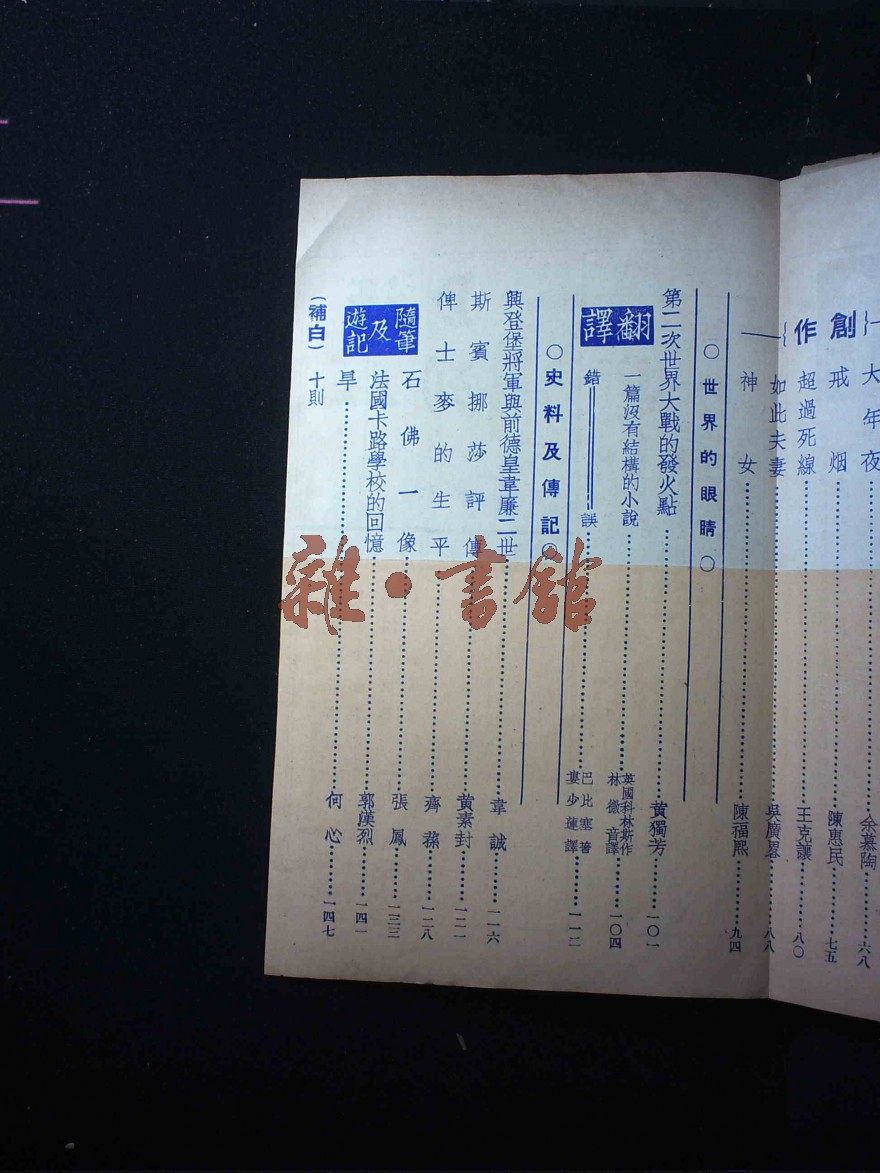 創作
大年夜……余慕陶……六八
戒烟……陳惠民……七五
超過死線……王克讓……八〇
如此夫妻……吳廣畧……八八
神女……陳福熙……九四
○世界的眼睛○
第二次世界大戰的發火點……黃獨芳……一〇一
翻譯
一篇沒有結構的小說……英國科林斯作 林微音譯……一〇四
錯誤……巴比塞著 婁少蓮譯……一一二
○史料及傳記○
興登堡將軍與前德皇韋廉二世……韋誠……一一六
斯賓挪莎評傳……黃素封……一二一
俾士麥的生平……齊蓀……一二八
隨筆及遊記
石佛一像……張鳳……一三三
法國卡路學校的回憶……郭漢烈……一四一
旱……何心……一四七
(補白)十則
雜·書館